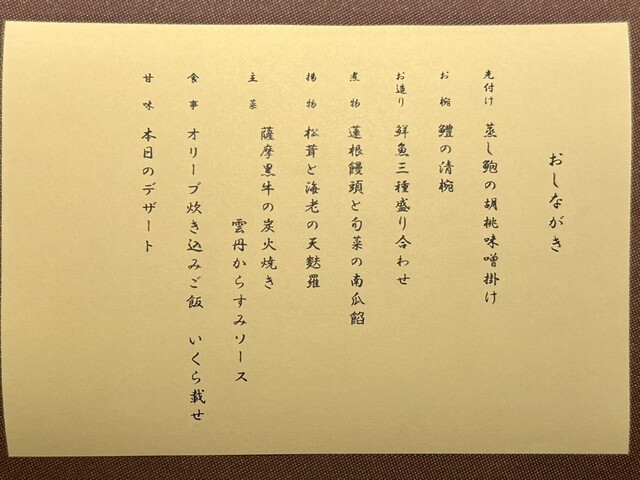 おしながき
先付け 蒸し鮑の胡桃味噌掛け
お椀 鱧の清椀
お造り 鮮魚三種盛り合わせ
煮物 蓮根饅頭と旬菜の南瓜餡
揚物 松茸と海老の天麩羅
主菜 薩摩黒牛の炭火焼き
雲丹からすみソース
食事 オリーブ炊き込みご飯 いくら載せ
甘味 本日のデザート